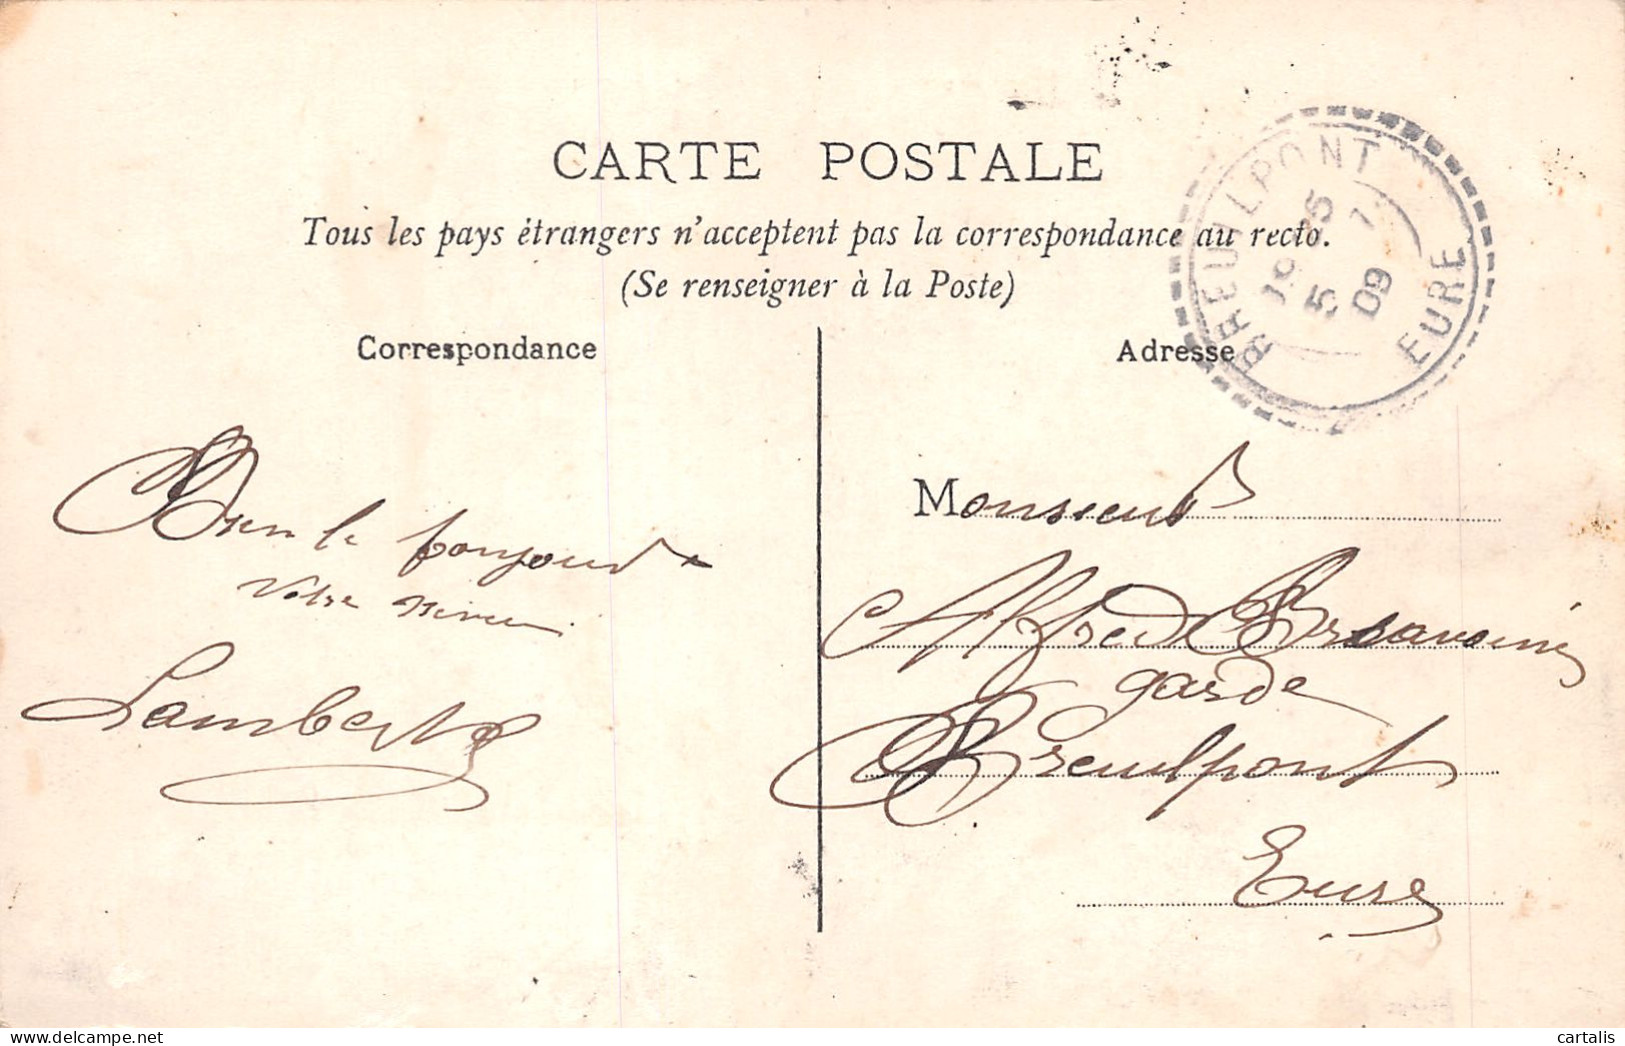 CARTE POSTALE
Tous les pays étrangers n'acceptent pas la correspondance au recto.
(Se renseigner à la Poste)
Correspondance
Adresse
BREUILPONT
EURE
5
09
Bien le bonjour
Votre neveu
Lambert
Monsieur
Alfred
garde
Breuilpont
Eure
delcampe.net
cartalis